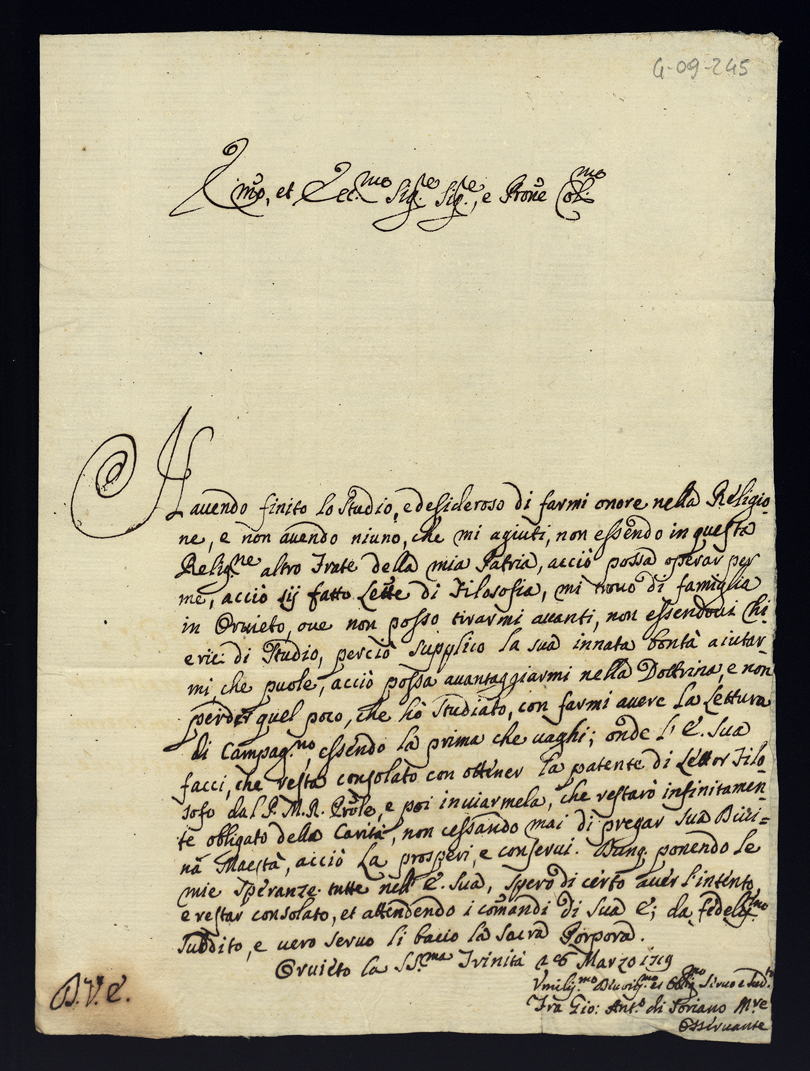 4-09-245
Em̃o, et Ecc.mo Sig.re Sig.re, e Prone Col.mo
Havendo finito lo Studio, e desideroso di farmi onore nella Religio-
ne, e non avendo niuno, che mi agiuti, non essendo in questa
Relig.ne altro Frate della mia Patria, acciò possa operar per
me, acciò sij fatto Lett.e di Filosofia, mi trovo di famiglia
in Orvieto, ove non posso tirarmi avanti, non essendovi Chi-
erici di Studio, perciò supplico la sua innata bontà aiutar-
mi che puole, acciò possa avantaggiarmi nella Dottrina, e non
perder quel poco, che hò Studiato, con farmi avere la Lettura
di Campag.no, essendo la prima che vaghi; onde l'E. Sua
facci, che resta consolato con ottener la patente di Lettor Filo-
sofo dal P. M. R. Prõle, e poi inviarmela, che restarò infinitamen-
te obligato della Carità, non cessando mai di pregar Sua Divi=
na Maestà, acciò La prosperi, e conservi. Dunq. ponendo le
mie speranze tutte nell'E. Sua, spero di certo aver l'intento,
e restar consolato, et attendendo i comandi di Sua E; da fedeliss.mo
suddito, e vero servo li bacio la Sacra Porpora.
Orvieto la SS.ma Trinità a 6 Marzo 1719
D. V. E.
Umiliss.mo Divotiss.mo et Oblig.mo Servo e Sud.to
Fra Gio: Ant.o di Soriano M.re
Osservante